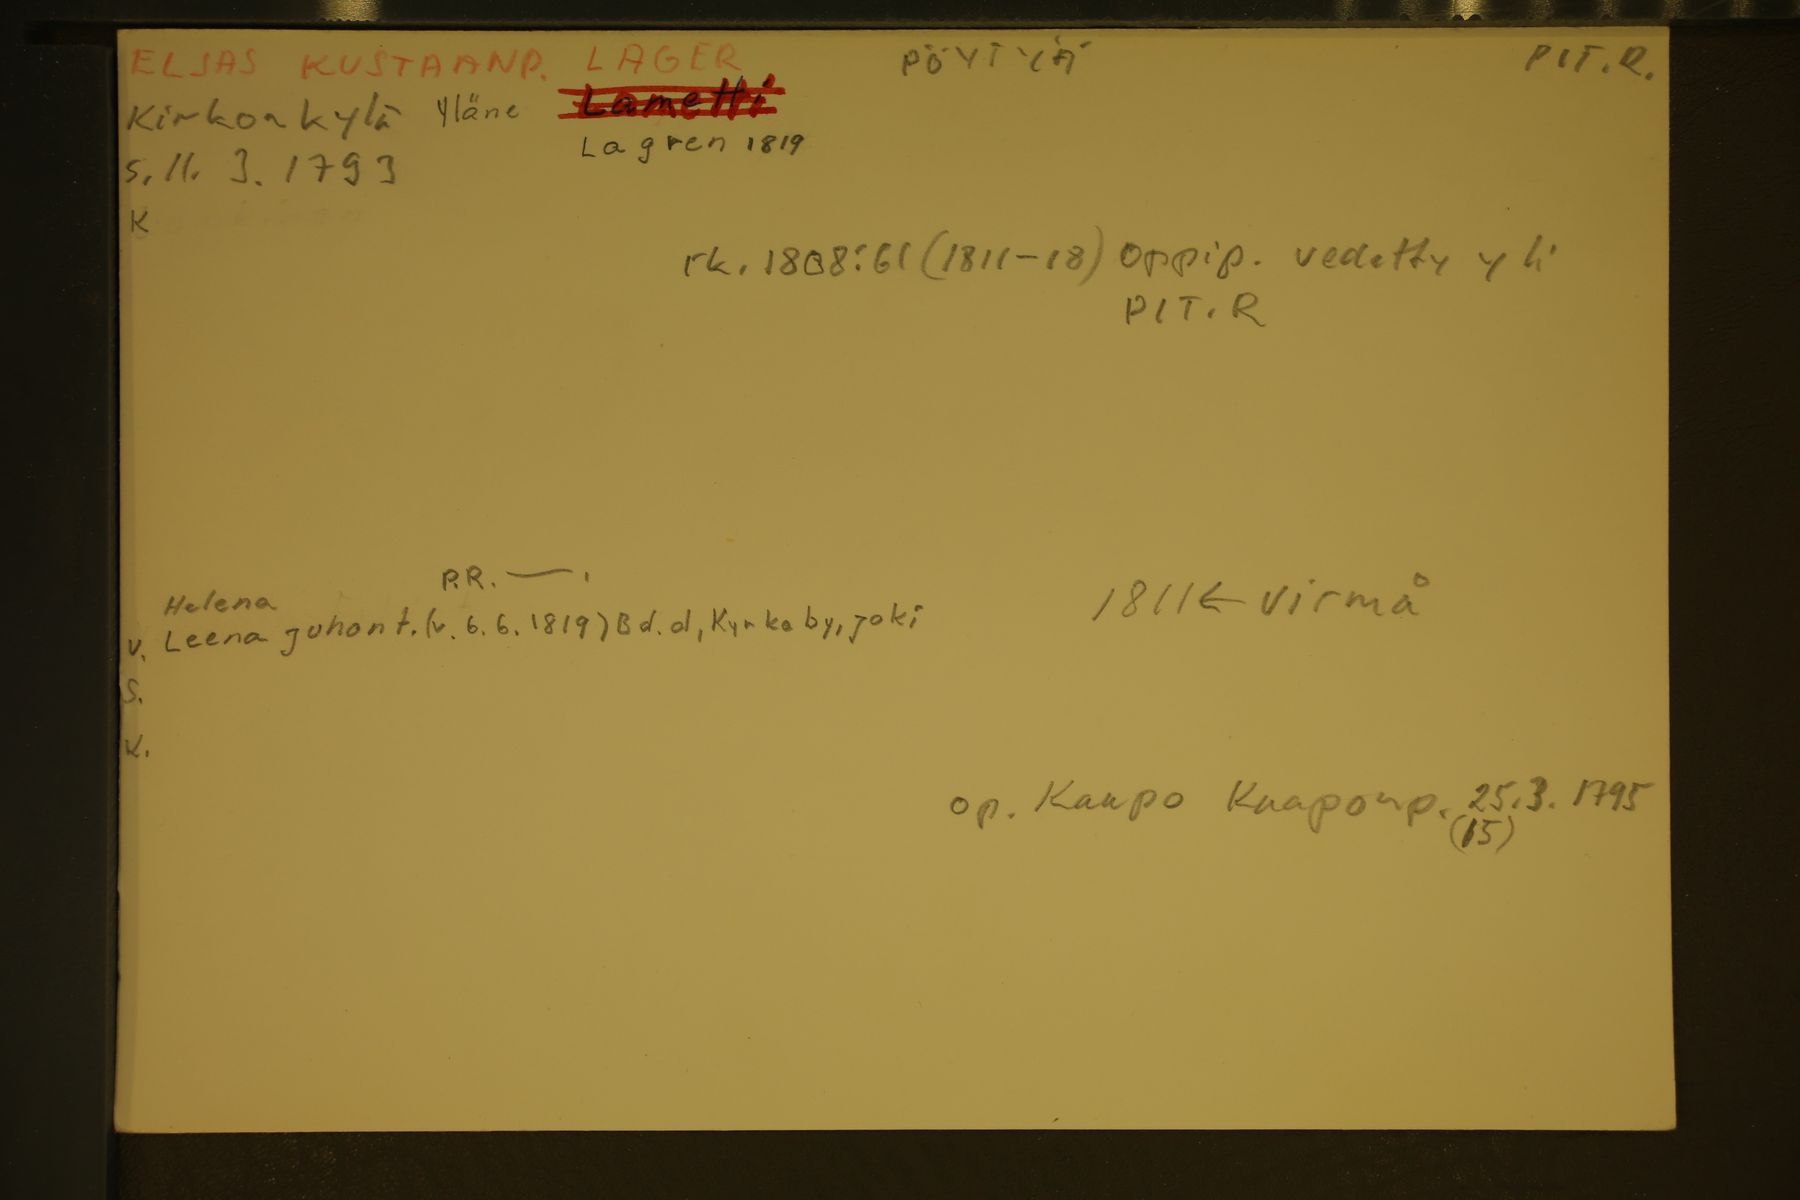 ELJAS KUSTAANP. LAGER PÖYTYÄ PIT.R.
Kirkonkylä Yläne Lametti
Lagren 1819
s. 11. 3. 1793
K
rk. 1808:61 (1811-18) Oppip. vedetty yli
PIT.R
P.R. —.
Helena
v. Leena Juhont. (v. 6.6. 1819) Bd.d, Kyrkoby, joki
1811 ← Virmå
S.
K.
op. Kaapo Kaaponp. 25.3. 1795
(15)